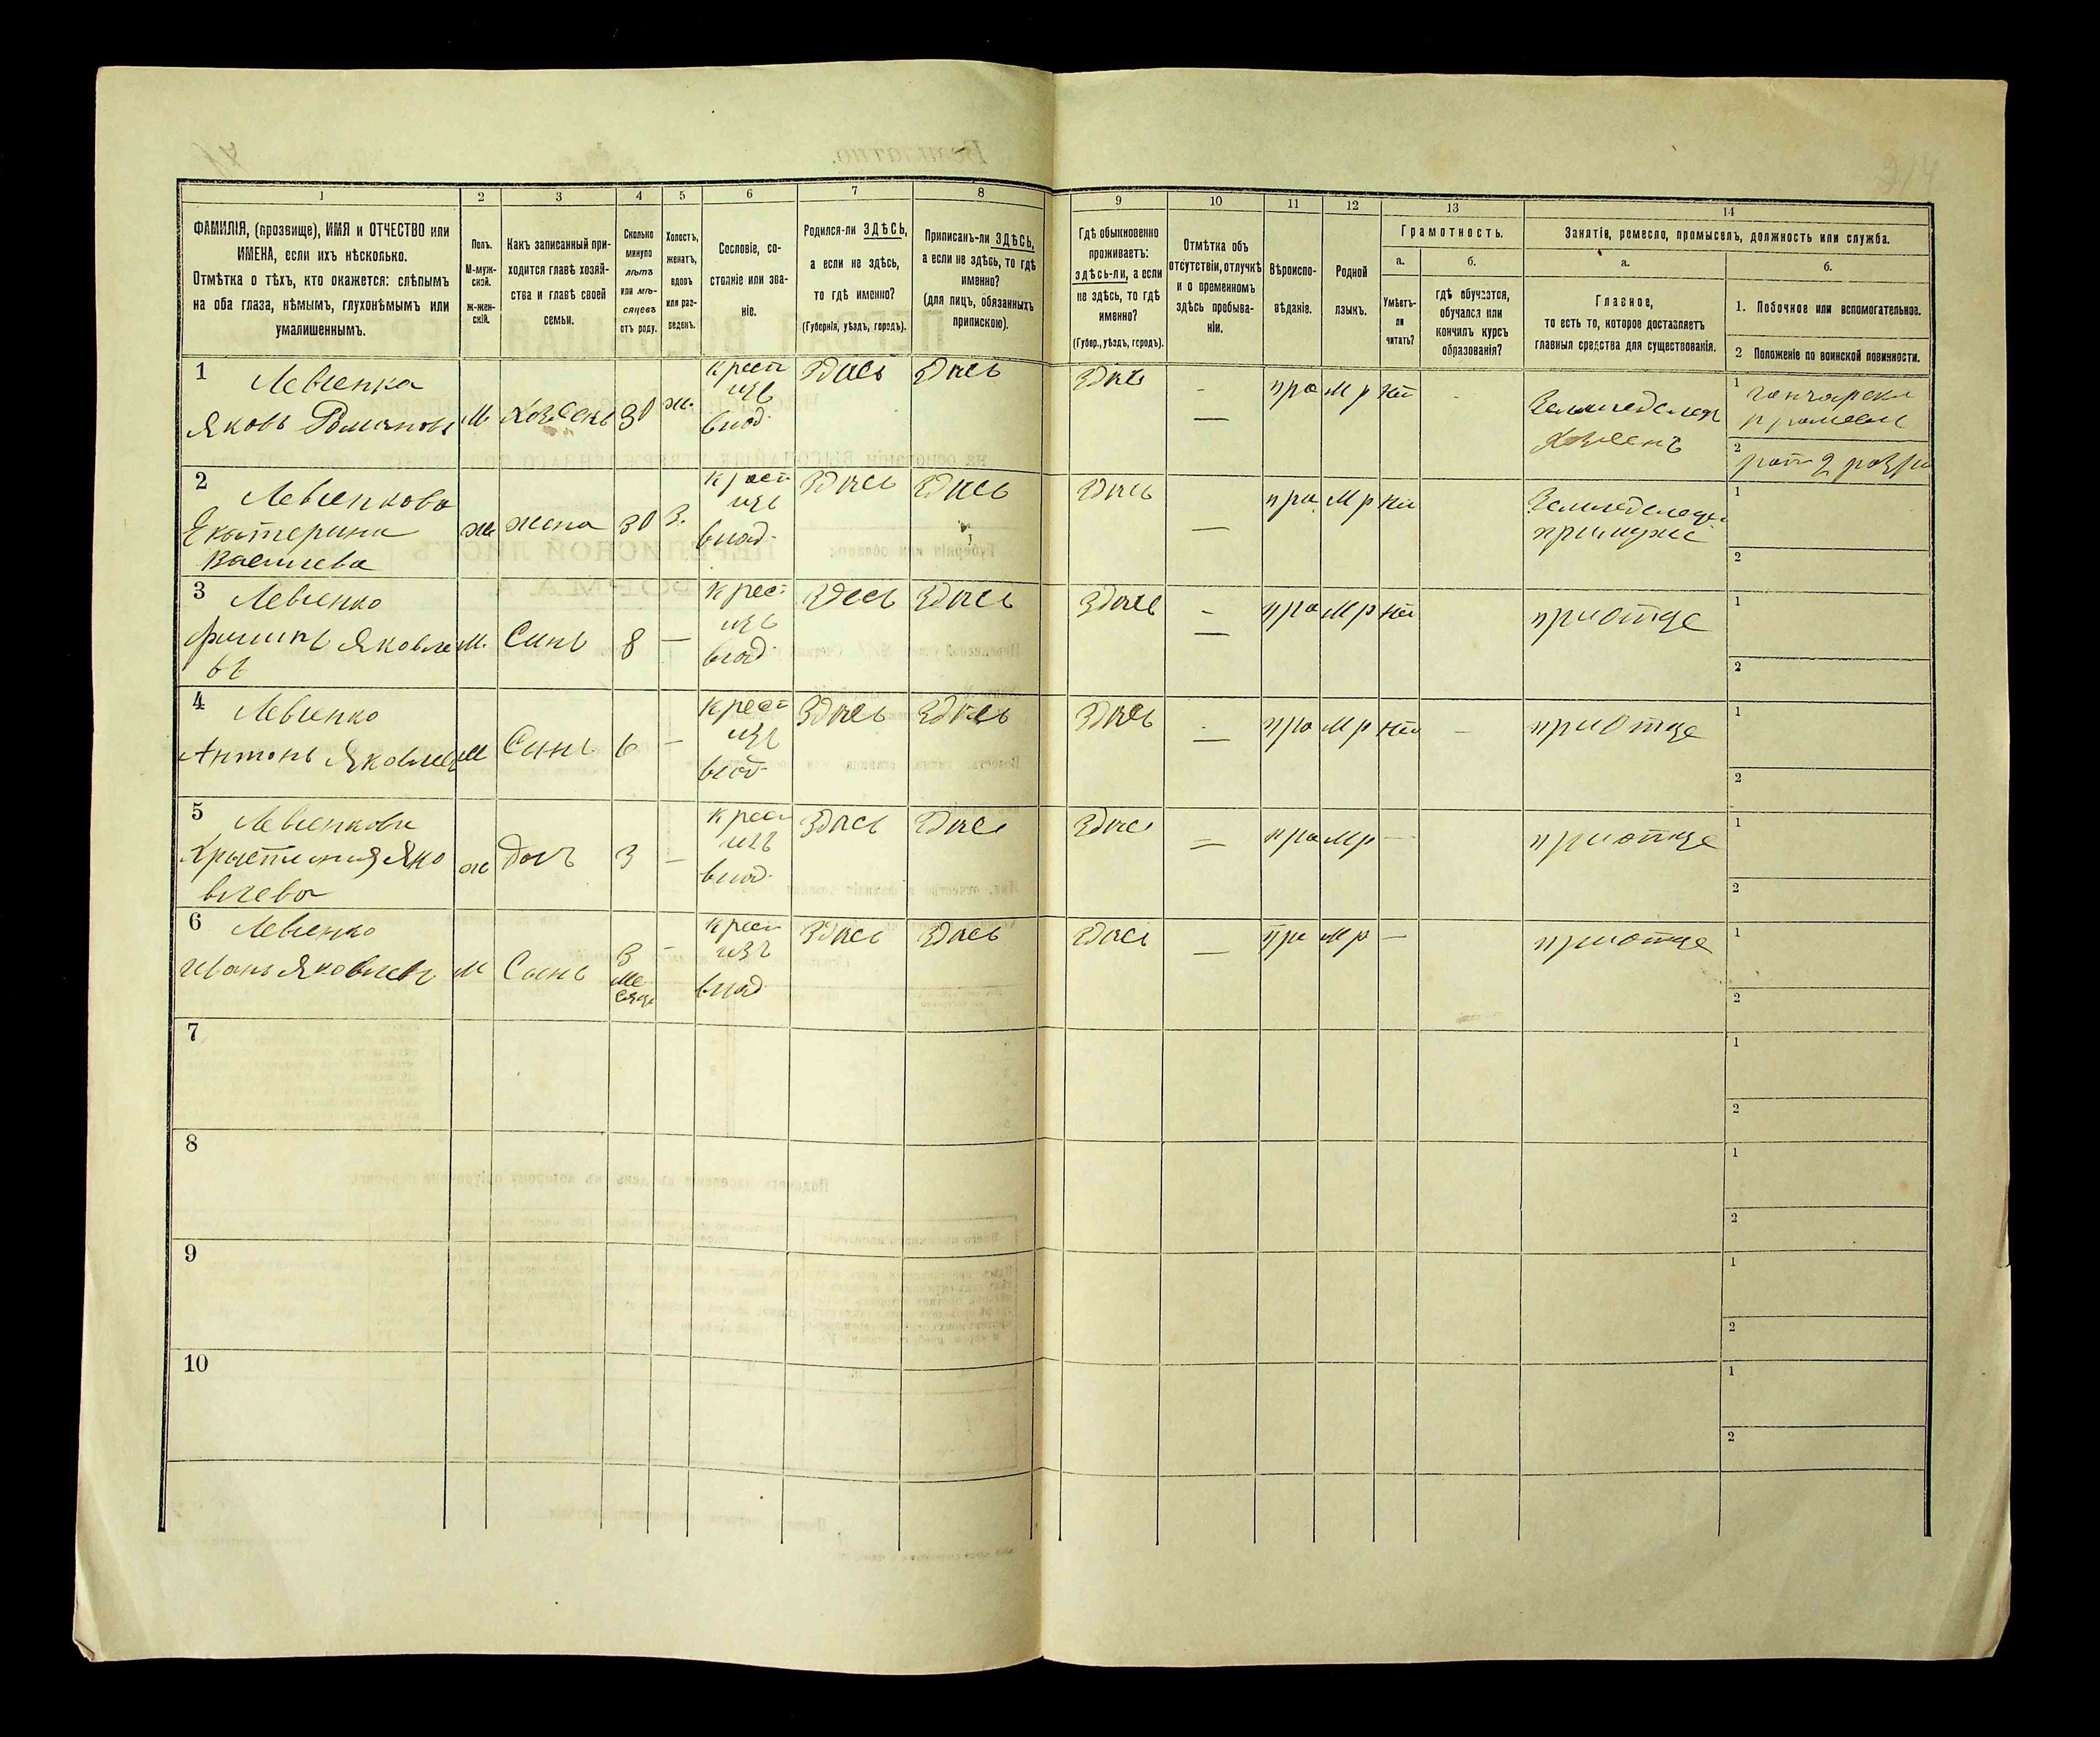 1
2
3
4
5
6
7
8
9
10
11
12
13
14
ФАМИЛІЯ, (прозвище), ИМЯ и ОТЧЕСТВО или
ИМЕНА, если ихъ нѣсколько.
Отмѣтка о тѣхъ, кто окажется: слѣпымъ
на оба глаза, нѣмымъ, глухонѣмымъ или
умалишеннымъ.
Полъ.
М-муж-
ской.
ж-жен-
скій.
Какъ записанный при-
ходится главѣ хозяй-
ства и главѣ своей
семьи.
Сколько
минуло
лѣтъ
или мѣ-
сяцевъ
отъ роду.
Холостъ,
женатъ,
вдовъ
или раз-
веденъ.
Сословіе, со-
стояніе или зва-
ніе.
Родился-ли ЗДѢСЬ,
а если не здѣсь,
то гдѣ именно?
(Губернія, уѣздъ, городъ).
Приписанъ-ли ЗДѢСЬ,
а если не здѣсь, то гдѣ
именно?
(для лицъ, обязанныхъ
припискою).
Гдѣ обыкновенно
проживаетъ:
здѣсь-ли, а если
не здѣсь, то гдѣ
именно?
(Губер., уѣздъ, городъ).
Отмѣтка объ
отсутствіи, отлучкѣ
и о временномъ
здѣсь пребыва-
ніи.
Вѣроиспо-
вѣданіе.
Родной
языкъ.
Грамотность.
а.
Умѣетъ-
ли
читать?
б.
гдѣ обучается,
обучался или
кончилъ курсъ
образованія?
Занятіе, ремесло, промыселъ, должность или служба.
а.
Главное,
то есть то, которое доставляетъ
главныя средства для существованія.
б.
1. Побочное или вспомогательное.
2 Положеніе по воинской повинности.
1 Левченко
Яковъ Романовъ
М
Хозяенъ
30
ж.
крест
изъ
влад.
Здѣсь
Здѣсь
Здѣсь
пра
М р
нѣт
Земледелецъ
хозяенъ
1 гончарски
промысел
2 рат 2 розря
2 Левченкова
Екатерина
Василева
ж
жена
30
з.
крест
изъ
влад.
Здѣсь
Здѣсь
Здѣсь
пра
М р
нѣт
Земледелец
примуже
1
2
3 Левченко
Филипъ Яковле
въ
м.
Синъ
8
—
крес
изъ
влад.
Здесь
Здѣсь
Здѣсь
—
пра
М р
нѣт
приотце
1
2
4 Левченко
Антонъ Яковлевъ
м
Синъ
6
—
крест
изъ
влад.
Здѣсь
Здѣсь
Здѣсь
—
пра
М р
нѣт
—
приотце
1
2
5 Левченкова
Христиния Яко
влева
ж
Доч
3
—
крест
изъ
влад.
Здѣсь
Здѣсь
Здѣсь
пра
М р
—
приотце
1
2
6 Левченко
Иванъ Яковлевъ
М
Синъ
3
ме
сяца
—
крест
изъ
влад
Здѣсь
Здѣсь
Здѣсь
—
пра
М р
—
приотце
1
2
7
1
2
8
1
2
9
1
2
10
1
2